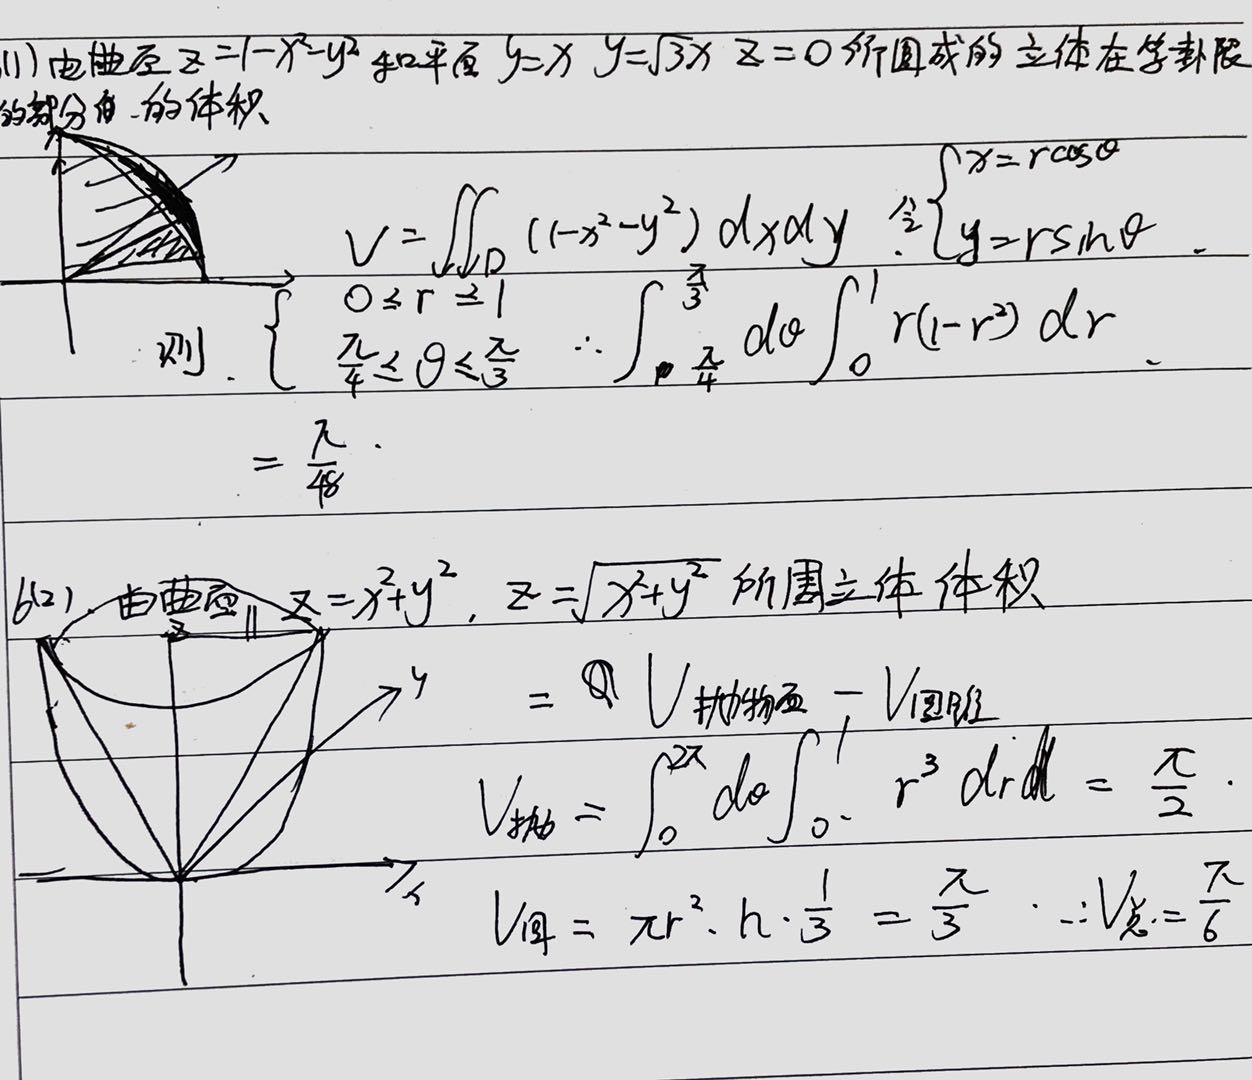 (1) 由曲面 z=1-x²-y² 和平面 y=x y=√3x z=0 所围成的立体在第卦限
的部分 的体积
V=∬_D (1-x²-y²) dxdy 令 { x=rcosθ y=rsinθ .
则 { 0≤r≤1 π/4≤θ≤π/3 ∴ ∫_{π/4}^{π/3} dθ ∫_0^1 r(1-r²) dr .
= π/48 .
6(2). 由曲面 z=x²+y², z=√(x²+y²) 所围立体体积
z
y
= V抛物面 - V圆锥
V抛 = ∫_0^{2π} dθ ∫_0^1 r³ dr = π/2 .
x
V圆 = πr²·h·1/3 = π/3 . ∴V总=π/6